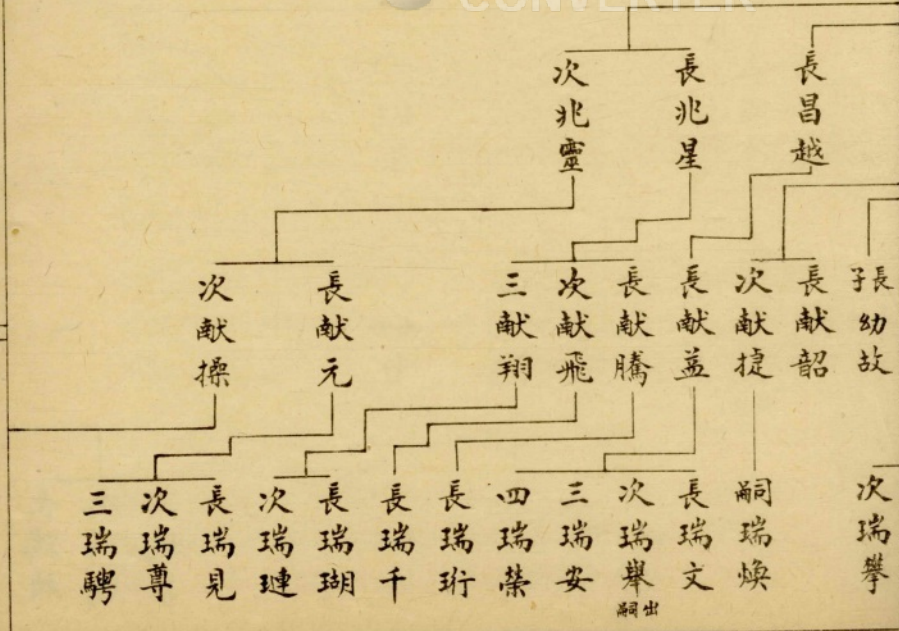 CONVERTER
長昌越
長兆星
次兆靈
長子幼故
長献韶
次献捷
長献益
長献騰
次献飛
三献翔
長献元
次献操
次瑞攀
嗣瑞煥
長瑞文
次瑞舉出嗣
三瑞安
四瑞榮
長瑞珩
長瑞千
長瑞瑚
次瑞璉
長瑞見
次瑞尊
三瑞騁